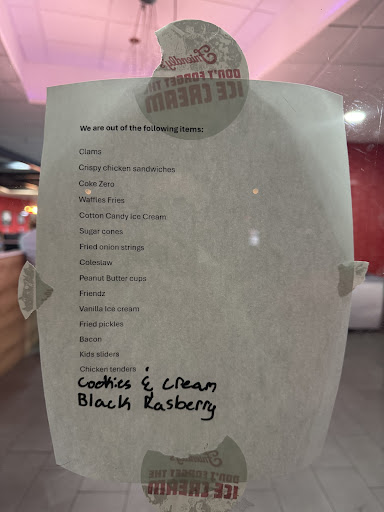 Friendly's
DON'T FORGET THE
ICE CREAM
We are out of the following items:
Clams
Crispy chicken sandwiches
Coke Zero
Waffles Fries
Cotton Candy Ice Cream
Sugar cones
Fried onion strings
Coleslaw
Peanut Butter cups
Friendz
Vanilla Ice cream
Fried pickles
Bacon
Kids sliders
Chicken tenders
Cookies & Cream
Black Rasberry
Friendly's
DON'T FORGET THE
ICE CREAM